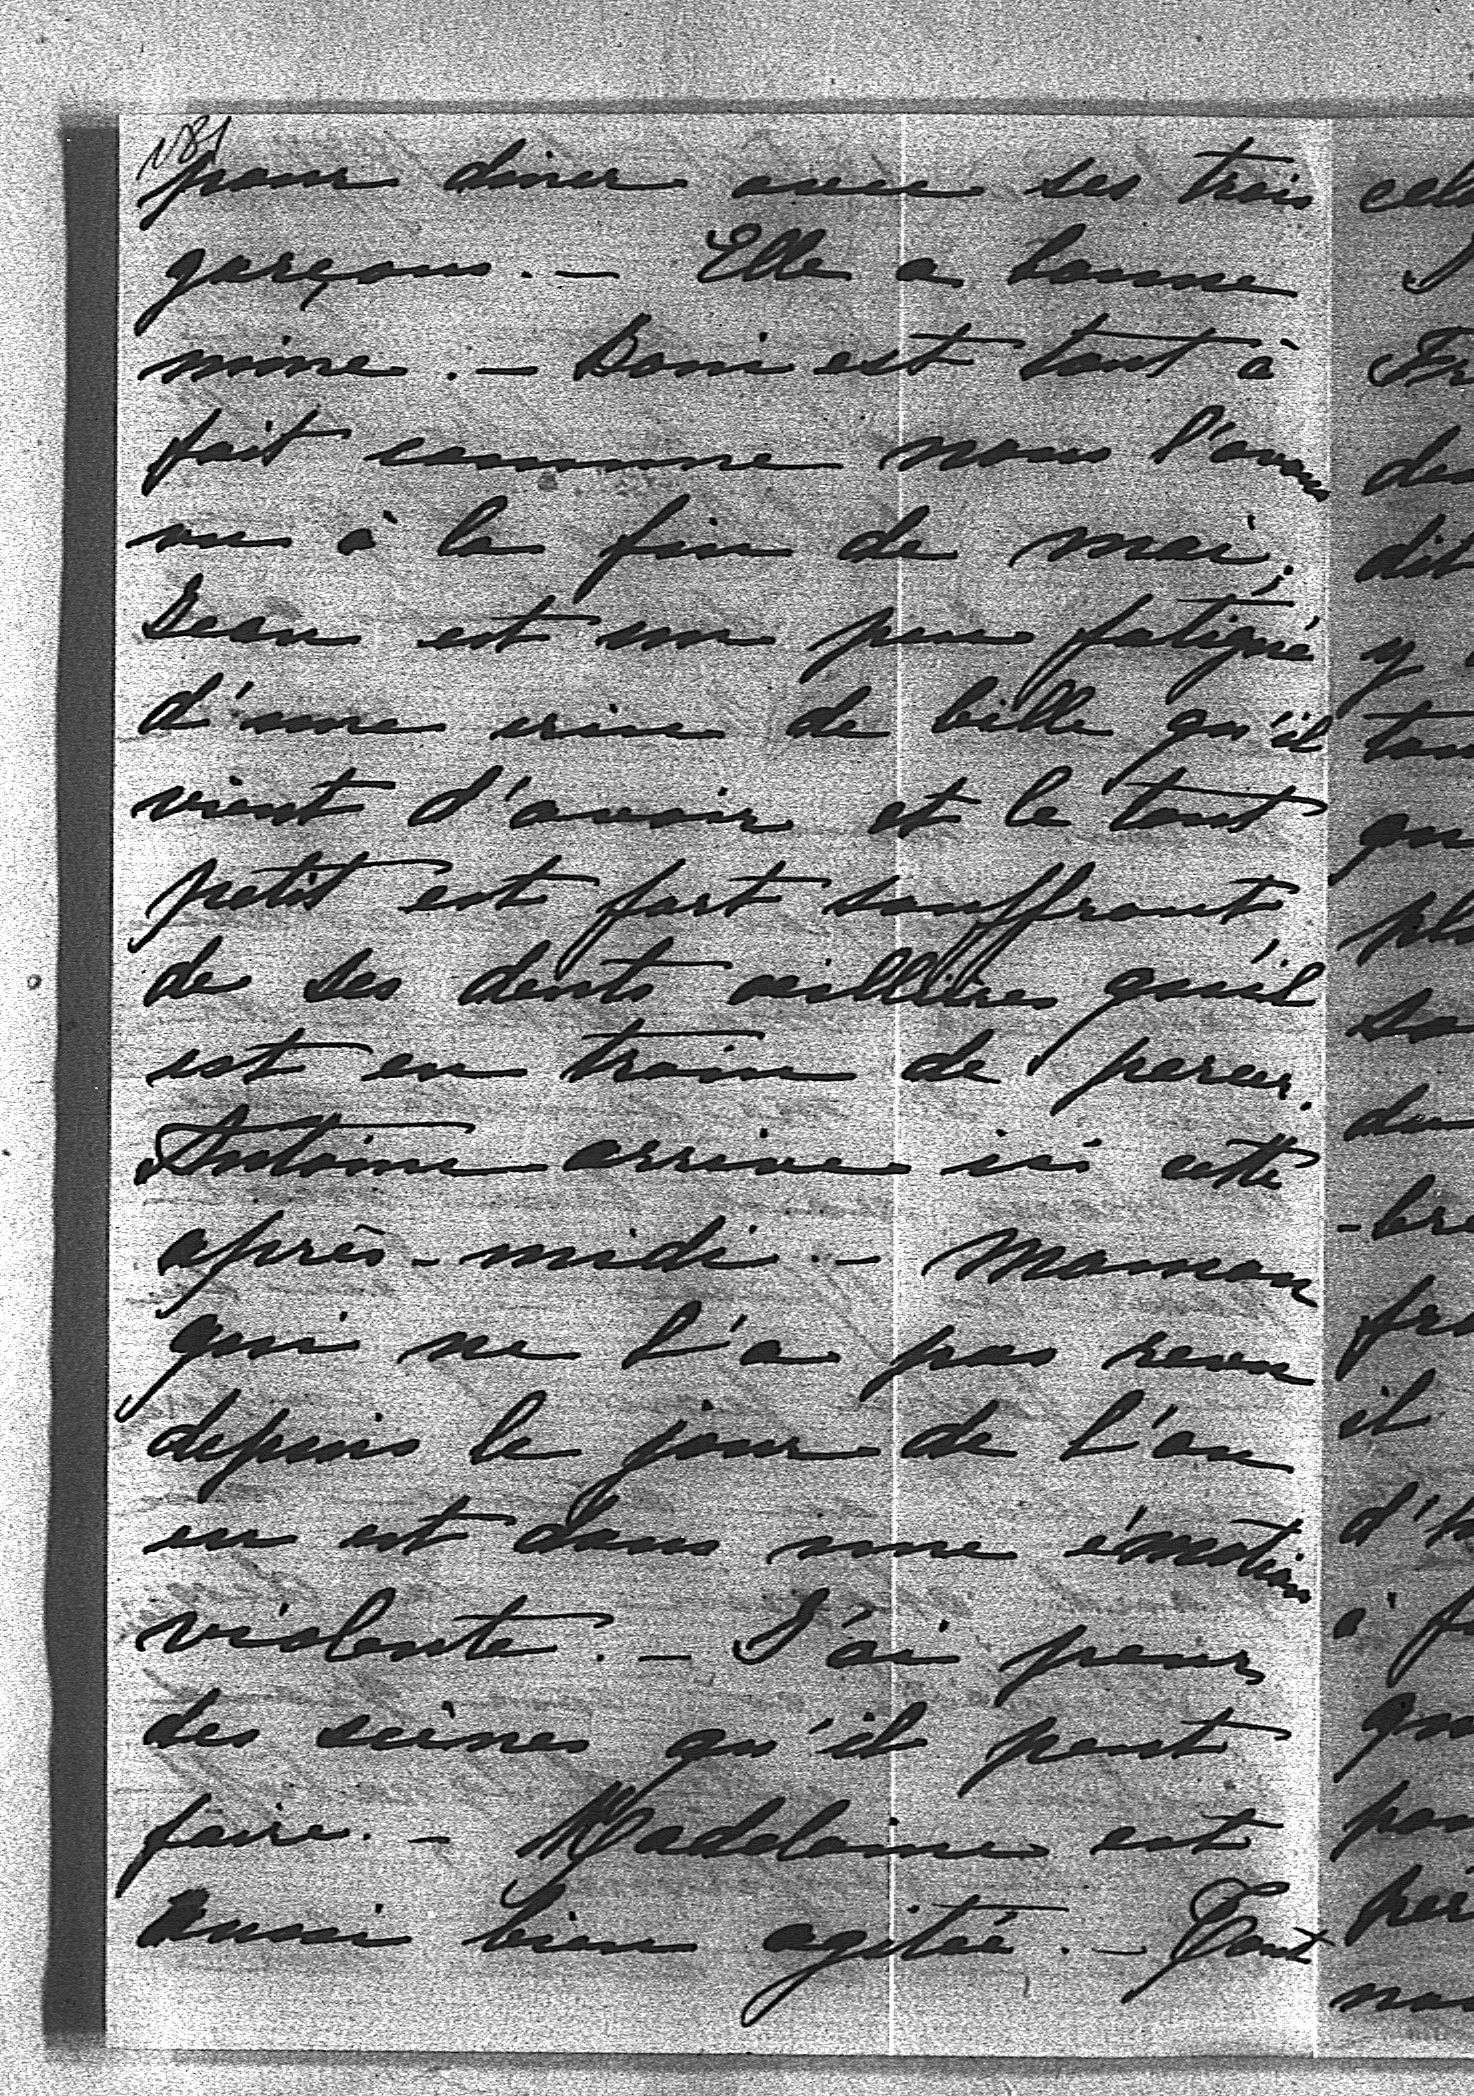 181
pour diner avec ses trois
garçons. — Elle a bonne
mine. — Boni est tout à
fait comme nous l'avons
vu à la fin de mai;
Jean est un peu fatigué
d'une crise de bille qu'il
vient d'avoir et le tout
petit est fort souffrant
de ses dents oeillères qu'il
est en train de percer.
Antoine arrive ici cette
après-midi. — Maman
qui ne l'a pas revu
depuis le jour de l'an
en est dans une émotion
violente. — J'ai peur
des scènes qu'il peut
faire. — Madeleine est
aussi bien agitée. — Tout